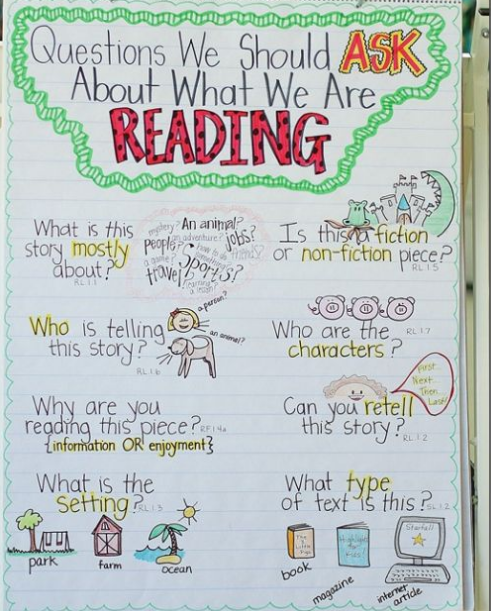 Questions We Should ASK
About What We Are
READING
What is this
story mostly
about?
RL.1.1
mystery? An animal?
people? adventure? jobs?
a game? how to do something? friends?
travel? Sports?
learning a lesson?
Is this a fiction
or non-fiction piece?
RL.1.5
Who is telling
this story?
RL.1.6
a person?
an animal?
Who are the
characters?
RL.1.7
Why are you
reading this piece?
RF.1.4a
{information OR enjoyment}
Can you retell
this story?
RL.1.2
First..
Next..
Then..
Last!
What is the
setting?
RL.1.3
park
farm
ocean
What type
of text is this?
SL.1.2
The 3 Little Pigs
book
Highlights for Kids!
magazine
Starfall
internet article